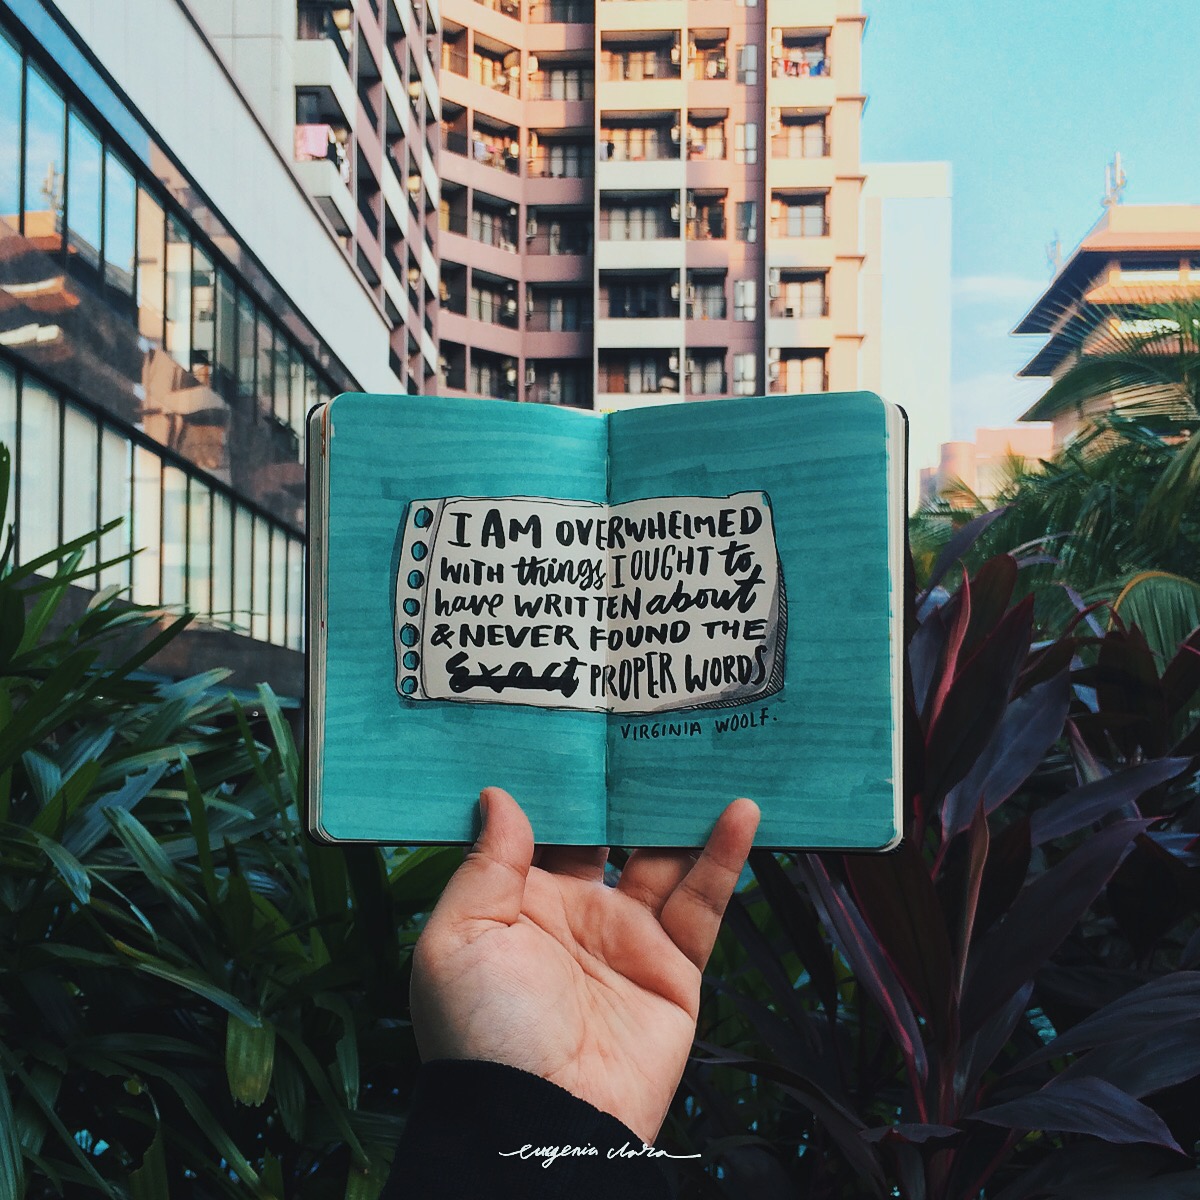 I AM OVERWHELMED
WITH things I OUGHT to
have WRITTEN about
& NEVER FOUND THE
exact PROPER WORDS
VIRGINIA WOOLF.
eugenia clara